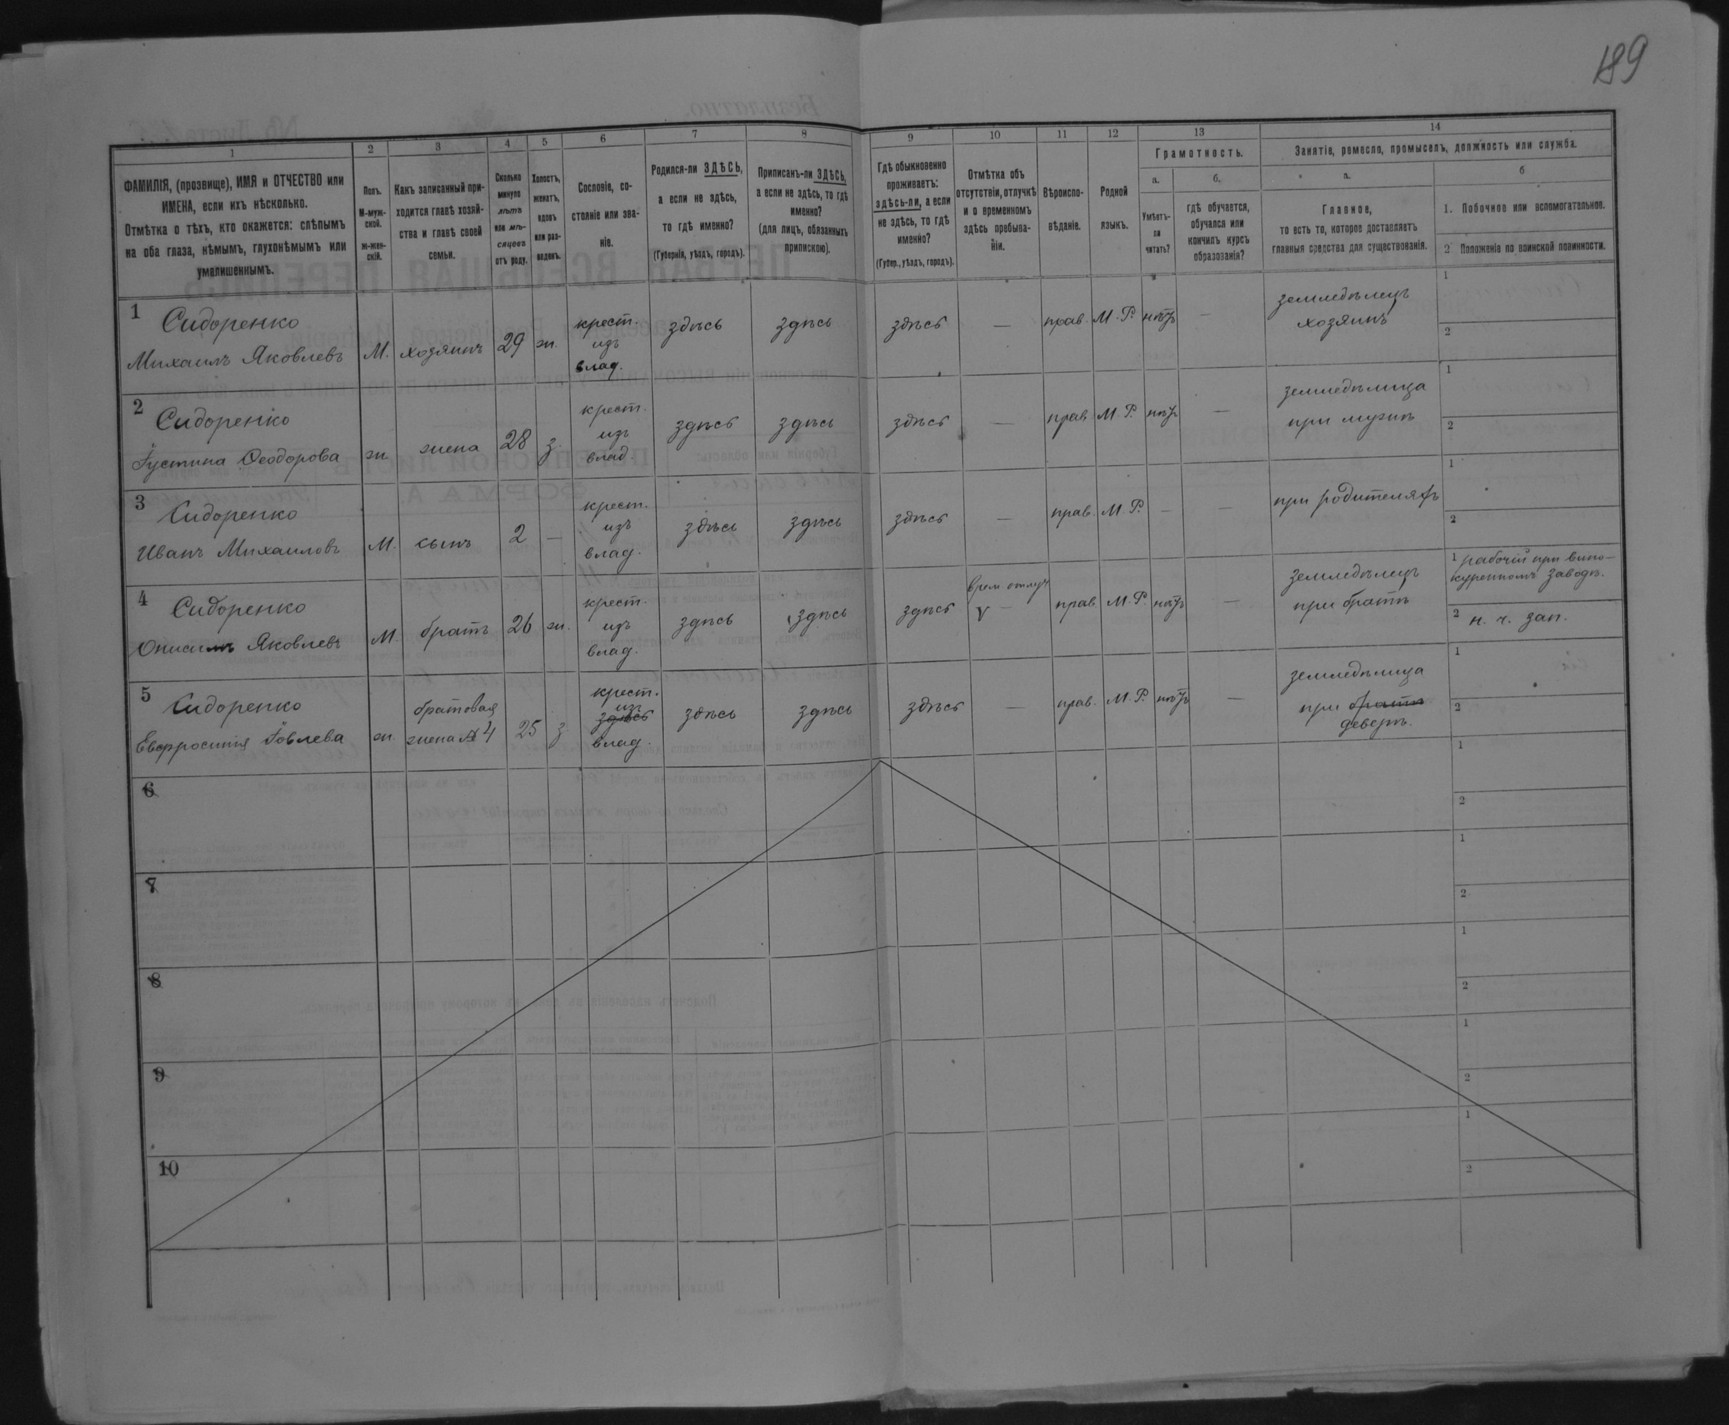 189
1
2
3
4
5
6
7
8
9
10
11
12
13
14
ФАМИЛІЯ, (прозвище), ИМЯ и ОТЧЕСТВО или
ИМЕНА, если ихъ нѣсколько.
Отмѣтка о тѣхъ, кто окажется: слѣпымъ
на оба глаза, нѣмымъ, глухонѣмымъ или
умалишеннымъ.
Полъ.
М-муж-
ской.
ж-жен-
скій.
Какъ записанный при-
ходится главѣ хозяй-
ства и главѣ своей
семьи.
Сколько
минуло
лѣтъ
или мѣ-
сяцевъ
отъ роду.
Холостъ,
женатъ,
вдовъ
или раз-
веденъ.
Сословіе, со-
стояніе или зва-
ніе.
Родился-ли ЗДѢСЬ,
а если не здѣсь,
то гдѣ именно?
(Губернія, уѣздъ, городъ).
Приписанъ-ли ЗДѢСЬ,
а если не здѣсь, то гдѣ
именно?
(для лицъ, обязанныхъ
припискою).
Гдѣ обыкновенно
проживаетъ:
здѣсь-ли, а если
не здѣсь, то гдѣ
именно?
(Губер., уѣздъ, городъ).
Отмѣтка объ
отсутствіи, отлучкѣ
и о временномъ
здѣсь пребыва-
ніи.
Вѣроиспо-
вѣданіе.
Родной
языкъ.
Грамотность.
а.
Умѣетъ-
ли
читать?
б.
гдѣ обучается,
обучался или
кончилъ курсъ
образованія?
Занятіе, ремесло, промыселъ, должность или служба.
а.
Главное,
то есть то, которое доставляетъ
главныя средства для существованія.
б
1. Побочное или вспомогательное.
2 Положеніе по воинской повинности.
1 Сидоренко
Михаилъ Яковлевъ
М.
хозяинъ
29
ж.
крест.
изъ
влад.
здѣсь
здѣсь
здѣсь
—
прав.
М. Р.
нѣтъ
—
земледѣлецъ
хозяинъ
1
2
2 Сидоренко
Іустина Ѳеодорова
ж.
жена
28
з.
крест.
изъ
влад.
здѣсь
здѣсь
здѣсь
—
прав.
М. Р.
нѣтъ
—
земледѣлица
при мужѣ
1
2
3 Сидоренко
Иванъ Михаиловъ
М.
сынъ
2
—
крест.
изъ
влад.
здѣсь
здѣсь
здѣсь
—
прав.
М. Р.
—
—
при родителяхъ
1
2
4 Сидоренко
Онисимъ Яковлевъ
М
братъ
26
ж.
крест.
изъ
влад.
здѣсь
здѣсь
здѣсь
врем отлуч
V —
прав.
М. Р.
нѣтъ
—
земледѣлецъ
при братѣ
1 рабочій при вино-
куренномъ заводѣ.
2 н. ч. зап.
5 Сидоренко
Евфросинія Іовлева
ж.
братовая
жена № 4
25
з.
крест.
изъ
здѣсь
влад.
здѣсь
здѣсь
здѣсь
—
прав.
М. Р.
нѣтъ
—
земледѣлица
при братѣ
деверѣ.
1
2
6
1
2
7
1
2
8
1
2
9
1
2
10
1
2